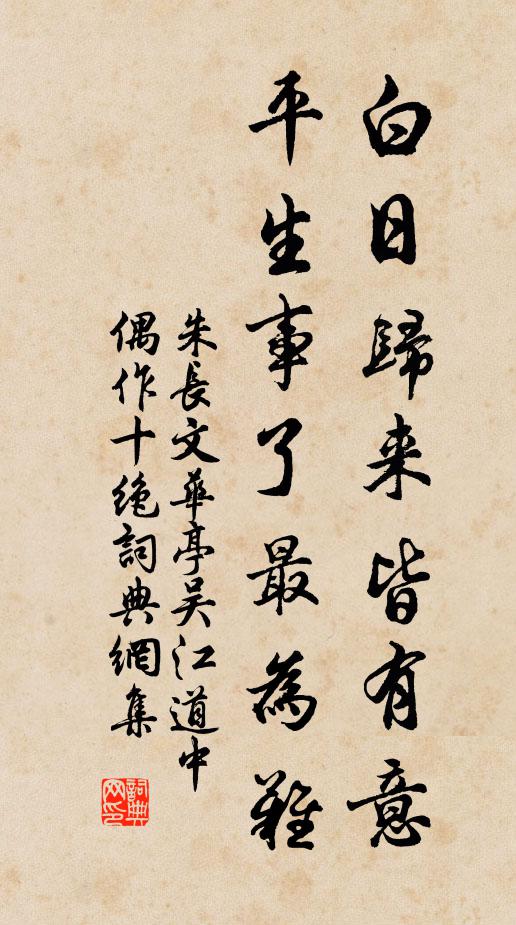 白日歸来皆有意
平生事了最為難
朱長文華亭吴江道中
偶作十絶詞典網集
詞典
网印